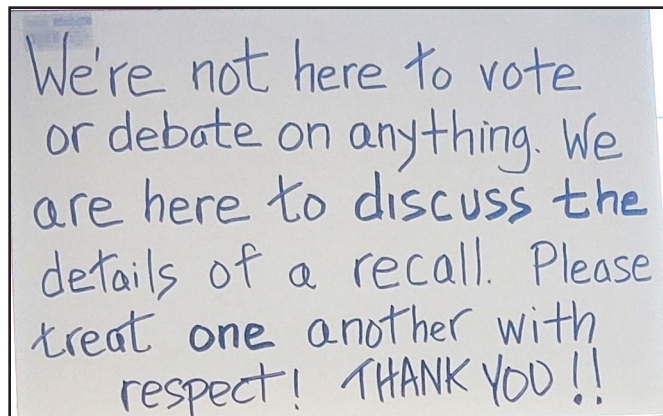 We're not here to vote
or debate on anything. We
are here to discuss the
details of a recall. Please
treat one another with
respect! THANK YOU!!